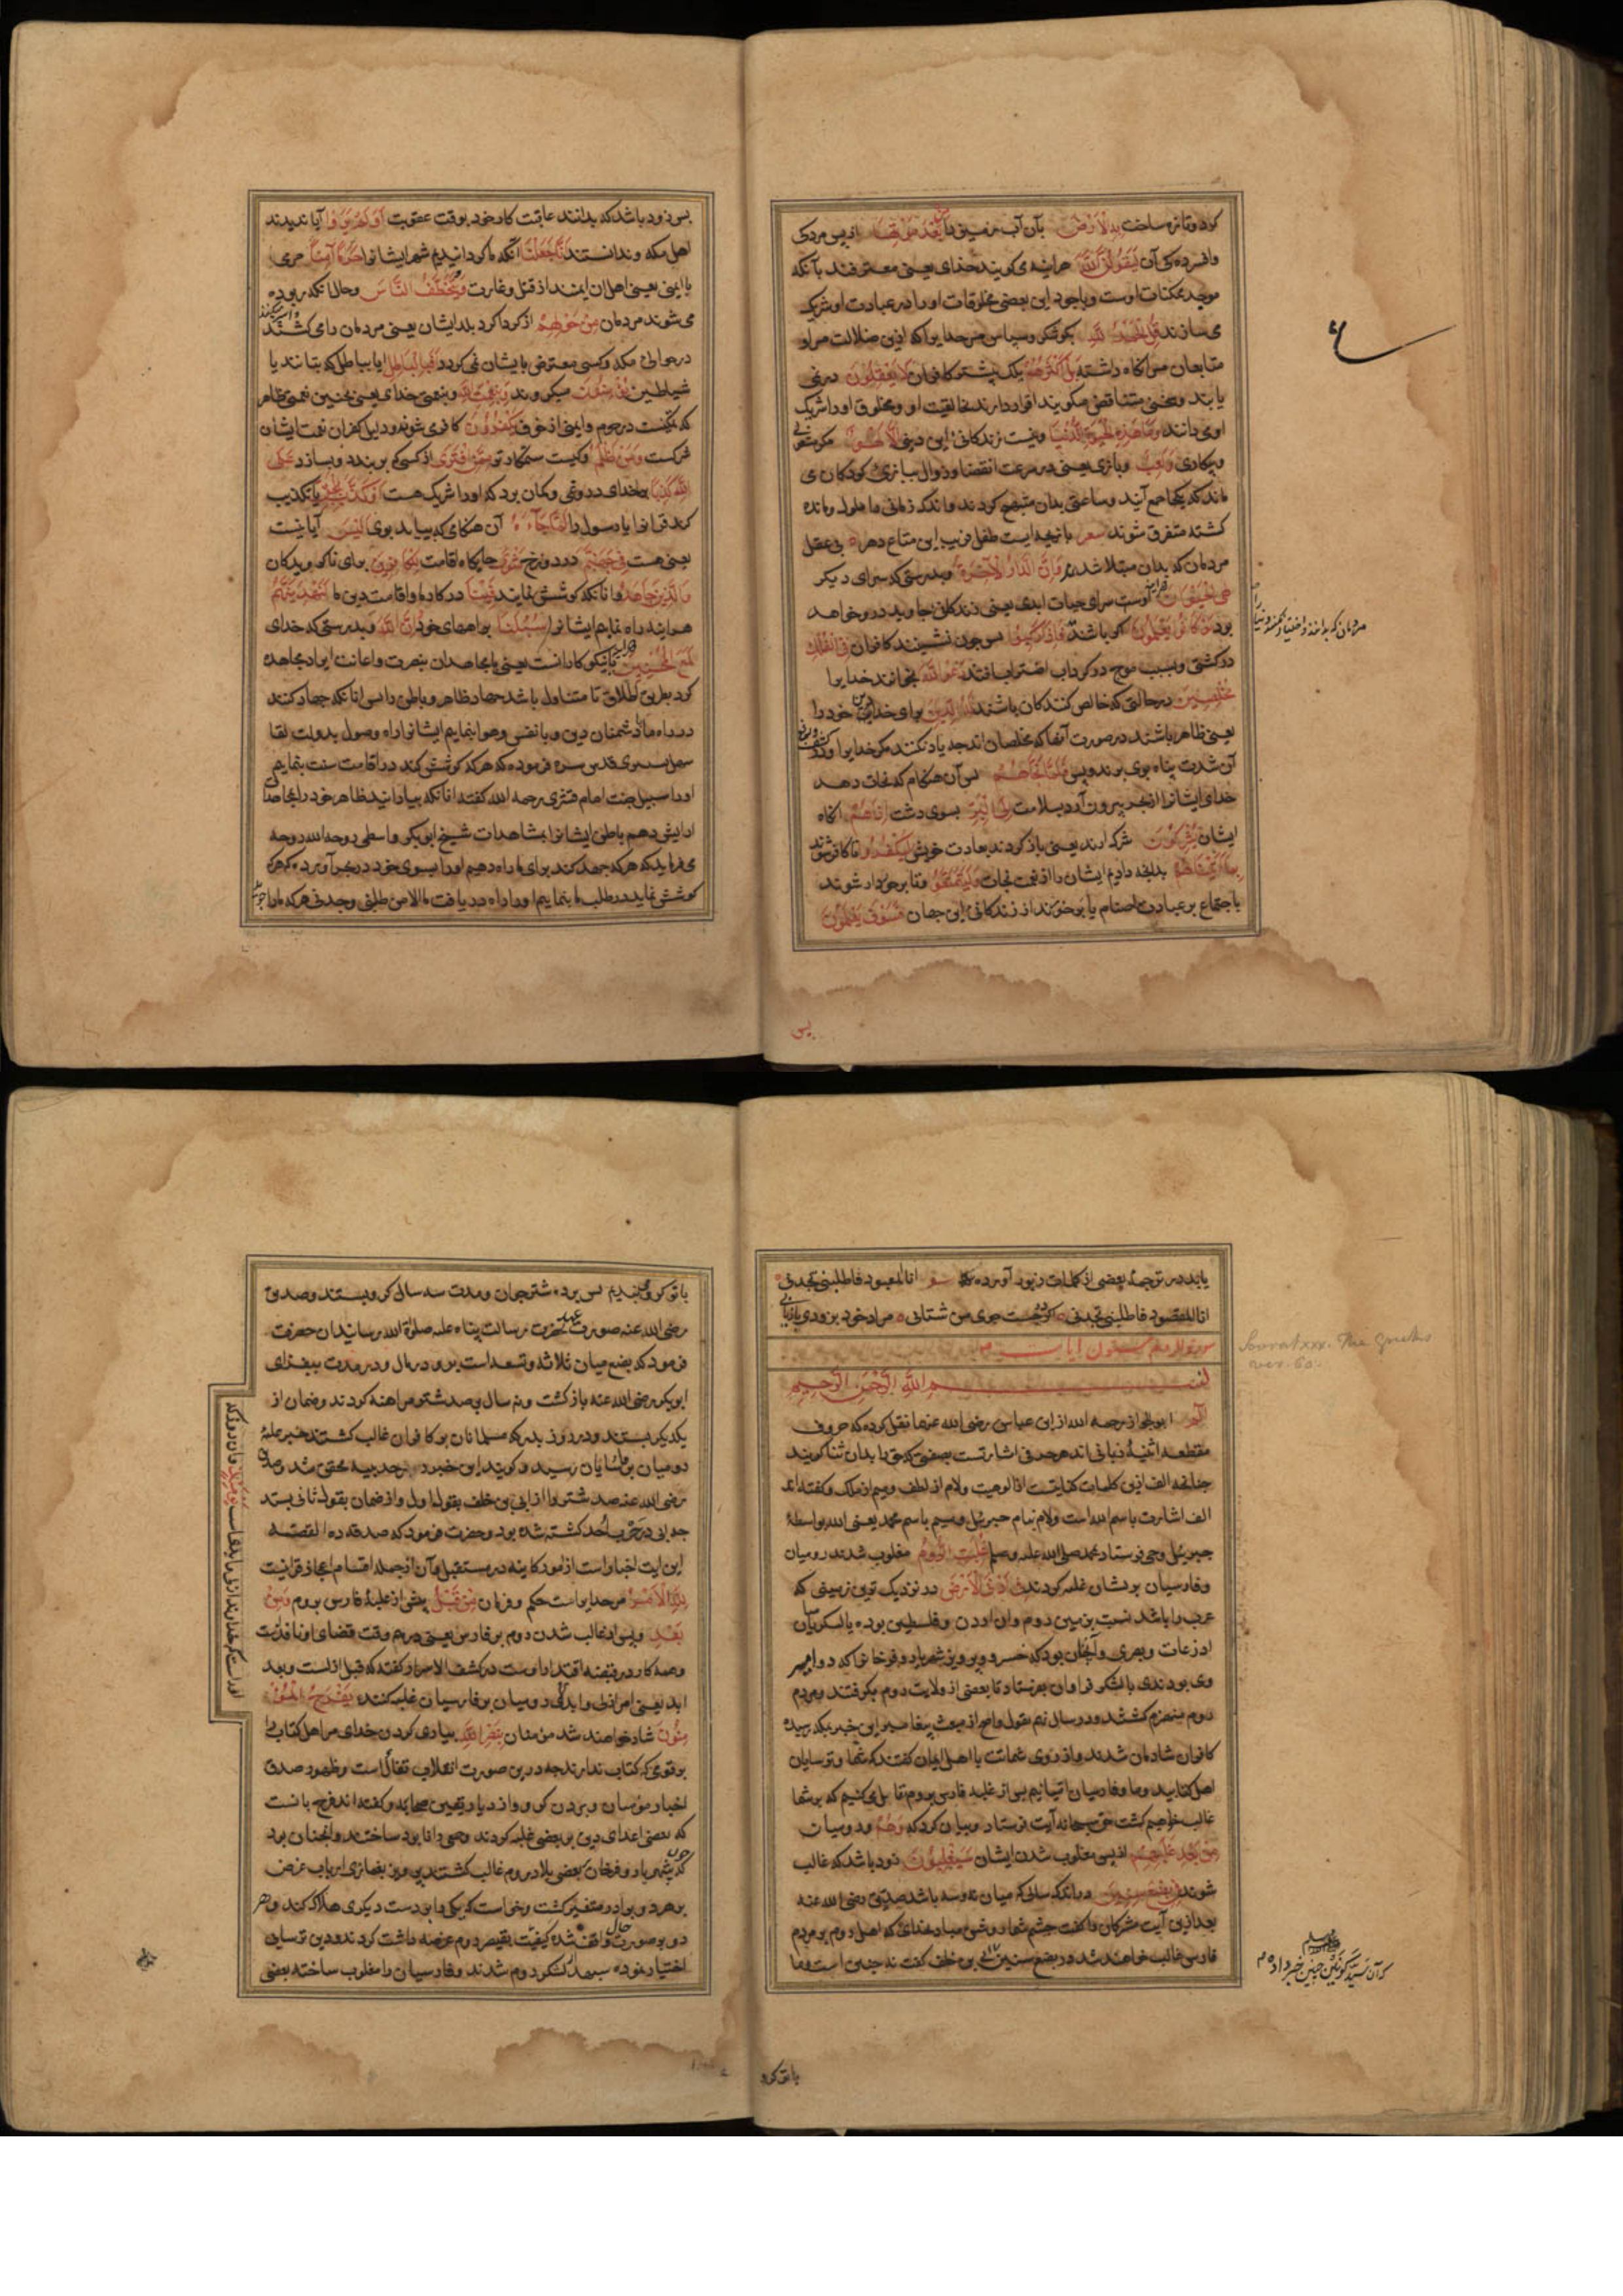 کرد و تازه ساخت بِهِ الْاَرْضَ بآن آب زمین را مِنْ بَعْدِ مَوْتِهَا از پس مردگی
و افسردگی آن لَیَقُولُنَّ اللّٰهُ هر اینه می گویند خدای یعنی معترفند بآنکه
موجد ممکنات اوست و باوجود این بعضی مخلوقات او را در عبادت او شریک
می سازند قُلِ الْحَمْدُ لِلّٰهِ بگو شکر و سپاس مر خدایرا که ازین ضلالت مرا و
متابعان مرا نگاه داشته بَلْ اَکْثَرُهُمْ بلکه بیشتر کافران لَا یَعْقِلُونَ در نمی
یابند و سخنی متناقض میگویند اقرار دارند بخالقیت او و مخلوق او را شریک
او می دانند وَمَا هٰذِهِ الْحَیٰوةُ الدُّنْیَا و نیست زندگانی این دنیی اِلَّا لَهْوٌ مگر مشغولی
و بیکاری وَلَعِبٌ و بازی یعنی در سرعت انقضا و زوال ببازی کودکان می
ماند که یکجا جمع آیند و ساعتی بدان مبتهج گردند و اندک زمانی را ملول و مانده
گشته متفرق شوند شعر بازیچه ایست طفل فریب این متاع دهر بی عقل
مردمان که بدان مبتلا شدند وَاِنَّ الدَّارَ الْاٰخِرَةَ و بدرستی که سرای دیگر
لَهِیَ الْحَیَوَانُ هر اینه اوست سرای حیات ابدی یعنی زندگانی جاوید درو خواهد
بود لَوْ کَانُوا یَعْلَمُونَ اگر باشند فَاِذَا رَکِبُوا پس چون نشینند کافران فِی الْفُلْکِ
در کشتی و بسبب موج در گرداب اضطراب افتند دَعَوُا اللّٰهَ بخوانند خدایرا
مُخْلِصِینَ در حالتی که خالص کنندگان باشند لَهُ الدِّینَ برای خدا دین خود را
یعنی ظاهر باشند در صورت آنها که مخلصان اند چه یاد نکنند مگر خدایرا و در کشف
آن شدت پناه بوی برند و بس فَلَمَّا نَجّٰهُمْ پس آن هنگام که نجات دهد
خدای ایشانرا از بحر بیرون آرد بسلامت اِلَی الْبَرِّ بسوی دشت اِذَا هُمْ آنگاه
ایشان یُشْرِکُونَ شرک آرند یعنی باز گردند بعادت خویش لِیَکْفُرُوا تا کافر شوند
بِمَا اٰتَیْنٰهُمْ بدانچه دادیم ایشان را از نعمت نجات وَلِیَتَمَتَّعُوا و تا برخوردار شوند
باجتماع بر عبادت اصنام یا برخورند از زندگانی این جهان فَسَوْفَ یَعْلَمُونَ
پس
پس زود باشد که بدانند عاقبت کار خود بوقت عقوبت اَوَلَمْ یَرَوْا آیا ندیدند
اهل مکه و ندانستند اَنَّا جَعَلْنَا آنکه ما گردانیدیم شهر ایشانرا حَرَمًا اٰمِنًا حرمی
با ایمنی یعنی اهل ان ایمنند از قتل و غارت وَیُتَخَطَّفُ النَّاسُ و حال انکه ربوده
می شوند مردمان مِنْ حَوْلِهِمْ از گرد اگرد بلد ایشان یعنی مردمان را می کشند
در حوالی مکه و کسی معترض بایشان نمی گردد اَفَبِالْبَاطِلِ ایا بباطل که بتانند یا
شیاطین یُؤْمِنُونَ میگروند وَبِنِعْمَةِ اللّٰهِ و بنعمت خدای یعنی بچنین نعمتی ظاهر
که تمکنست در حرم و ایمنی از خوف یَکْفُرُونَ کافر می شوند و دلیل کفران نعمت ایشان
شرکست وَمَنْ اَظْلَمُ و کیست ستمکارتر مِمَّنِ افْتَرٰی از کسی که بربندد و بسازد عَلَی
اللّٰهِ کَذِبًا بر خدای دروغی و گمان برد که او را شریک هست اَوْ کَذَّبَ بِالْحَقِّ یا تکذیب
کند قرانرا یا رسول را لَمَّا جَآءَهُ آن هنگامی که بیاید بوی اَلَیْسَ آیا نیست
یعنی هست فِی جَهَنَّمَ در دوزخ مَثْوًی جایگاه اقامت لِلْکَافِرِینَ برای ناگرویدگان
وَالَّذِینَ جَاهَدُوا و انانکه کوشش نمایند فِینَا در کار ما و اقامت دین ما لَنَهْدِیَنَّهُمْ
هر اینه راه نمایم ایشانرا سُبُلَنَا براههای خود وَاِنَّ اللّٰهَ و بدرستی که خدای
لَمَعَ الْمُحْسِنِینَ هراینه با نیکو کارانست یعنی با مجاهدان بنصرت و اعانت ایراد مجاهده
کرد بطریق اطلاق تا متناول باشد جهاد ظاهر و باطن را پس انانکه جهاد کنند
در راه ما با دشمنان دین و با نفس و هوا بنمایم ایشانرا راه وصول بدولت لقا
سهل تستری قدس سره فرموده که هر که کوشش کند در اقامت سنت بنمایم
او را سبیل جنت امام قشیری رحمه الله گفته انانکه بیارایند ظاهر خود را بمجاهدات
ارایش دهم باطن ایشانرا بمشاهدات شیخ ابو بکر واسطی روحه الله روحه
می فرماید که هر که جهد کند برای ما راه دهیم او را بسوی خود
کوشش نماید در طلب ما بنمایم او را راه دریافت ما الا من طلبنی وجدنی هر که ما را جوید
یابد در ترجمهٔ بعضی از کلمات زبور آورده که شعر انا المعبود فاطلبنی تجدنی
انا المقصود فاطلبنی تجدنی اگر در جست جوی من شتابی مراد خود بزودی بازیابی
سورة الروم ستون ایات
Soorat xxx. The Greeks
ver. 60.
بِسْمِ اللّٰهِ الرَّحْمٰنِ الرَّحِیمِ
الٓمٓ ابو الجوزا رحمه الله از ابن عباس رضی الله عنهما نقل کرده که حروف
مقطعه اثنیهٔ ربانی اند هر حرفی اشارتست بصفتی که حق را بدان ثنا گویند
چنانچه الف ازین کلمات کنایتست از الوهیت و لام از لطف و میم از ملک و گفته اند
الف اشارت باسم الله است و لام بنام جبرئیل و میم باسم محمد یعنی الله بواسطهٔ
جبرئیل وحی فرستاد بمحمد صلی الله علیه وسلم غُلِبَتِ الرُّومُ مغلوب شدند رومیان
و فارسیان بریشان غلبه کردند فِی اَدْنَی الْاَرْضِ در نزدیک ترین زمینی که
عرب را باشد نسبت بزمین روم و ان اردن و فلسطین بوده یا لشکریان
اذرعات و بصری و آنچنان بود که خسرو پرویز شهریار و فرخان را که دو امیر
وی بودندی با لشکر فراوان بفرستاد تا بعضی از ولایت روم بگرفتند و مردم
روم منهزم گشتند و در سال نهم بقول واضح از مبعث پیغامبر این خبر بمکه رسید
کافران شادمان شدند و از روی شماتت با اهل ایمان گفتند که شما و ترسایان
اهل کتابید و ما و فارسیان امّیانیم پس از غلبه فارس بروم تفاؤل می کنیم که بر شما
غالب خواهیم گشت حق سبحانه آیت فرستاد و بیان کرد که وَهُمْ و رومیان
مِنْ بَعْدِ غَلَبِهِمْ از پس مغلوب شدن ایشان سَیَغْلِبُونَ زود باشد که غالب
شوند فِی بِضْعِ سِنِینَ در اندک سالی که میان سه و نه باشد صدیق رضی الله عنه
بعد ازین آیت مشرکان را گفت چشم شما روشن مباد بخدای که اهل روم بر مردم
فارس غالب خواهند شد در بضع سنین ابی بن خلف گفت نه چنین است و ما
که آن سید کونین چنین خبر داده
با تو گرو
با تو گرو بندیم پس برده شتر جوان و مدت سه سال گرو بستند و صدیق
رضی الله عنه صورت عهد بحضرت رسالت پناه علیه صلوة الله رسانید ان حضرت
فرمود که بضع میان ثلاثه و تسعه است برو در مال و در مدت بیفزای
ابو بکر رضی الله عنه بازگشت و نه سال بصد شتر مراهنه کردند و ضمان از
یکدیگر بستند و در روز بدر که مسلمانان بر کافران غالب گشتند خبر غلبهٔ
رومیان بر فارسیان رسید و گویند این خبر در حدیبیه محقق شد و صدیق
رضی الله عنه صد شتر را از ابی بن خلف بقول اول و از ضمان بقول ثانی بستد
چه ابی در حرب احد کشته شده بود و حضرت فرمود که صدقه ده القصه
این ایت اخبار است از امور کاینه در مستقبل و آن از جمله اقسام اعجاز قرانیست
لِلّٰهِ الْاَمْرُ مر خدایراست حکم و فرمان مِنْ قَبْلُ پیش از غلبهٔ فارس بر روم وَمِنْ
بَعْدُ و پس از غالب شدن روم بر فارس یعنی در هر وقت قضای او نافذست
و همه کار در قبضه اقتدار اوست در کشف الاسرار گفته که قبل ازلست و بعد
ابد یعنی امر ازلی و ابدی
او راست که خداوند ازلی و ابدی است وَیَوْمَئِذٍ و ان روز که
رومیان بر فارسیان غلبه کنند یَفْرَحُ الْمُؤْ
مِنُونَ شاد خواهند شد مؤمنان بِنَصْرِ اللّٰهِ بیاری کردن خدای مر اهل کتاب را
بر قومی که کتاب ندارند چه درین صورت انقلاب تفاؤل است و ظهور صدق
اخبار مؤمنان و بردن گرو و ازدیاد یقین صحابه و گفته اند فرح بانست
که بعضی اعدای دین بر بعضی غلبه کردند و همی را نابود ساختند و انچنان بود
که چون شهریار و فرخان بعضی بلاد روم غالب گشتند پرویز بغمازی ارباب غرض
بر هر دو برادر متغیر گشت و خواست که یکی را بدست دیگری هلاک کند و هر
دو بر صورت حال واقف شده کیفیت بقیصر روم عرضه داشت کردند و دین ترسایی
اختیار نموده سپهدار لشکر روم شدند و فارسیان را مغلوب ساخته بعضی